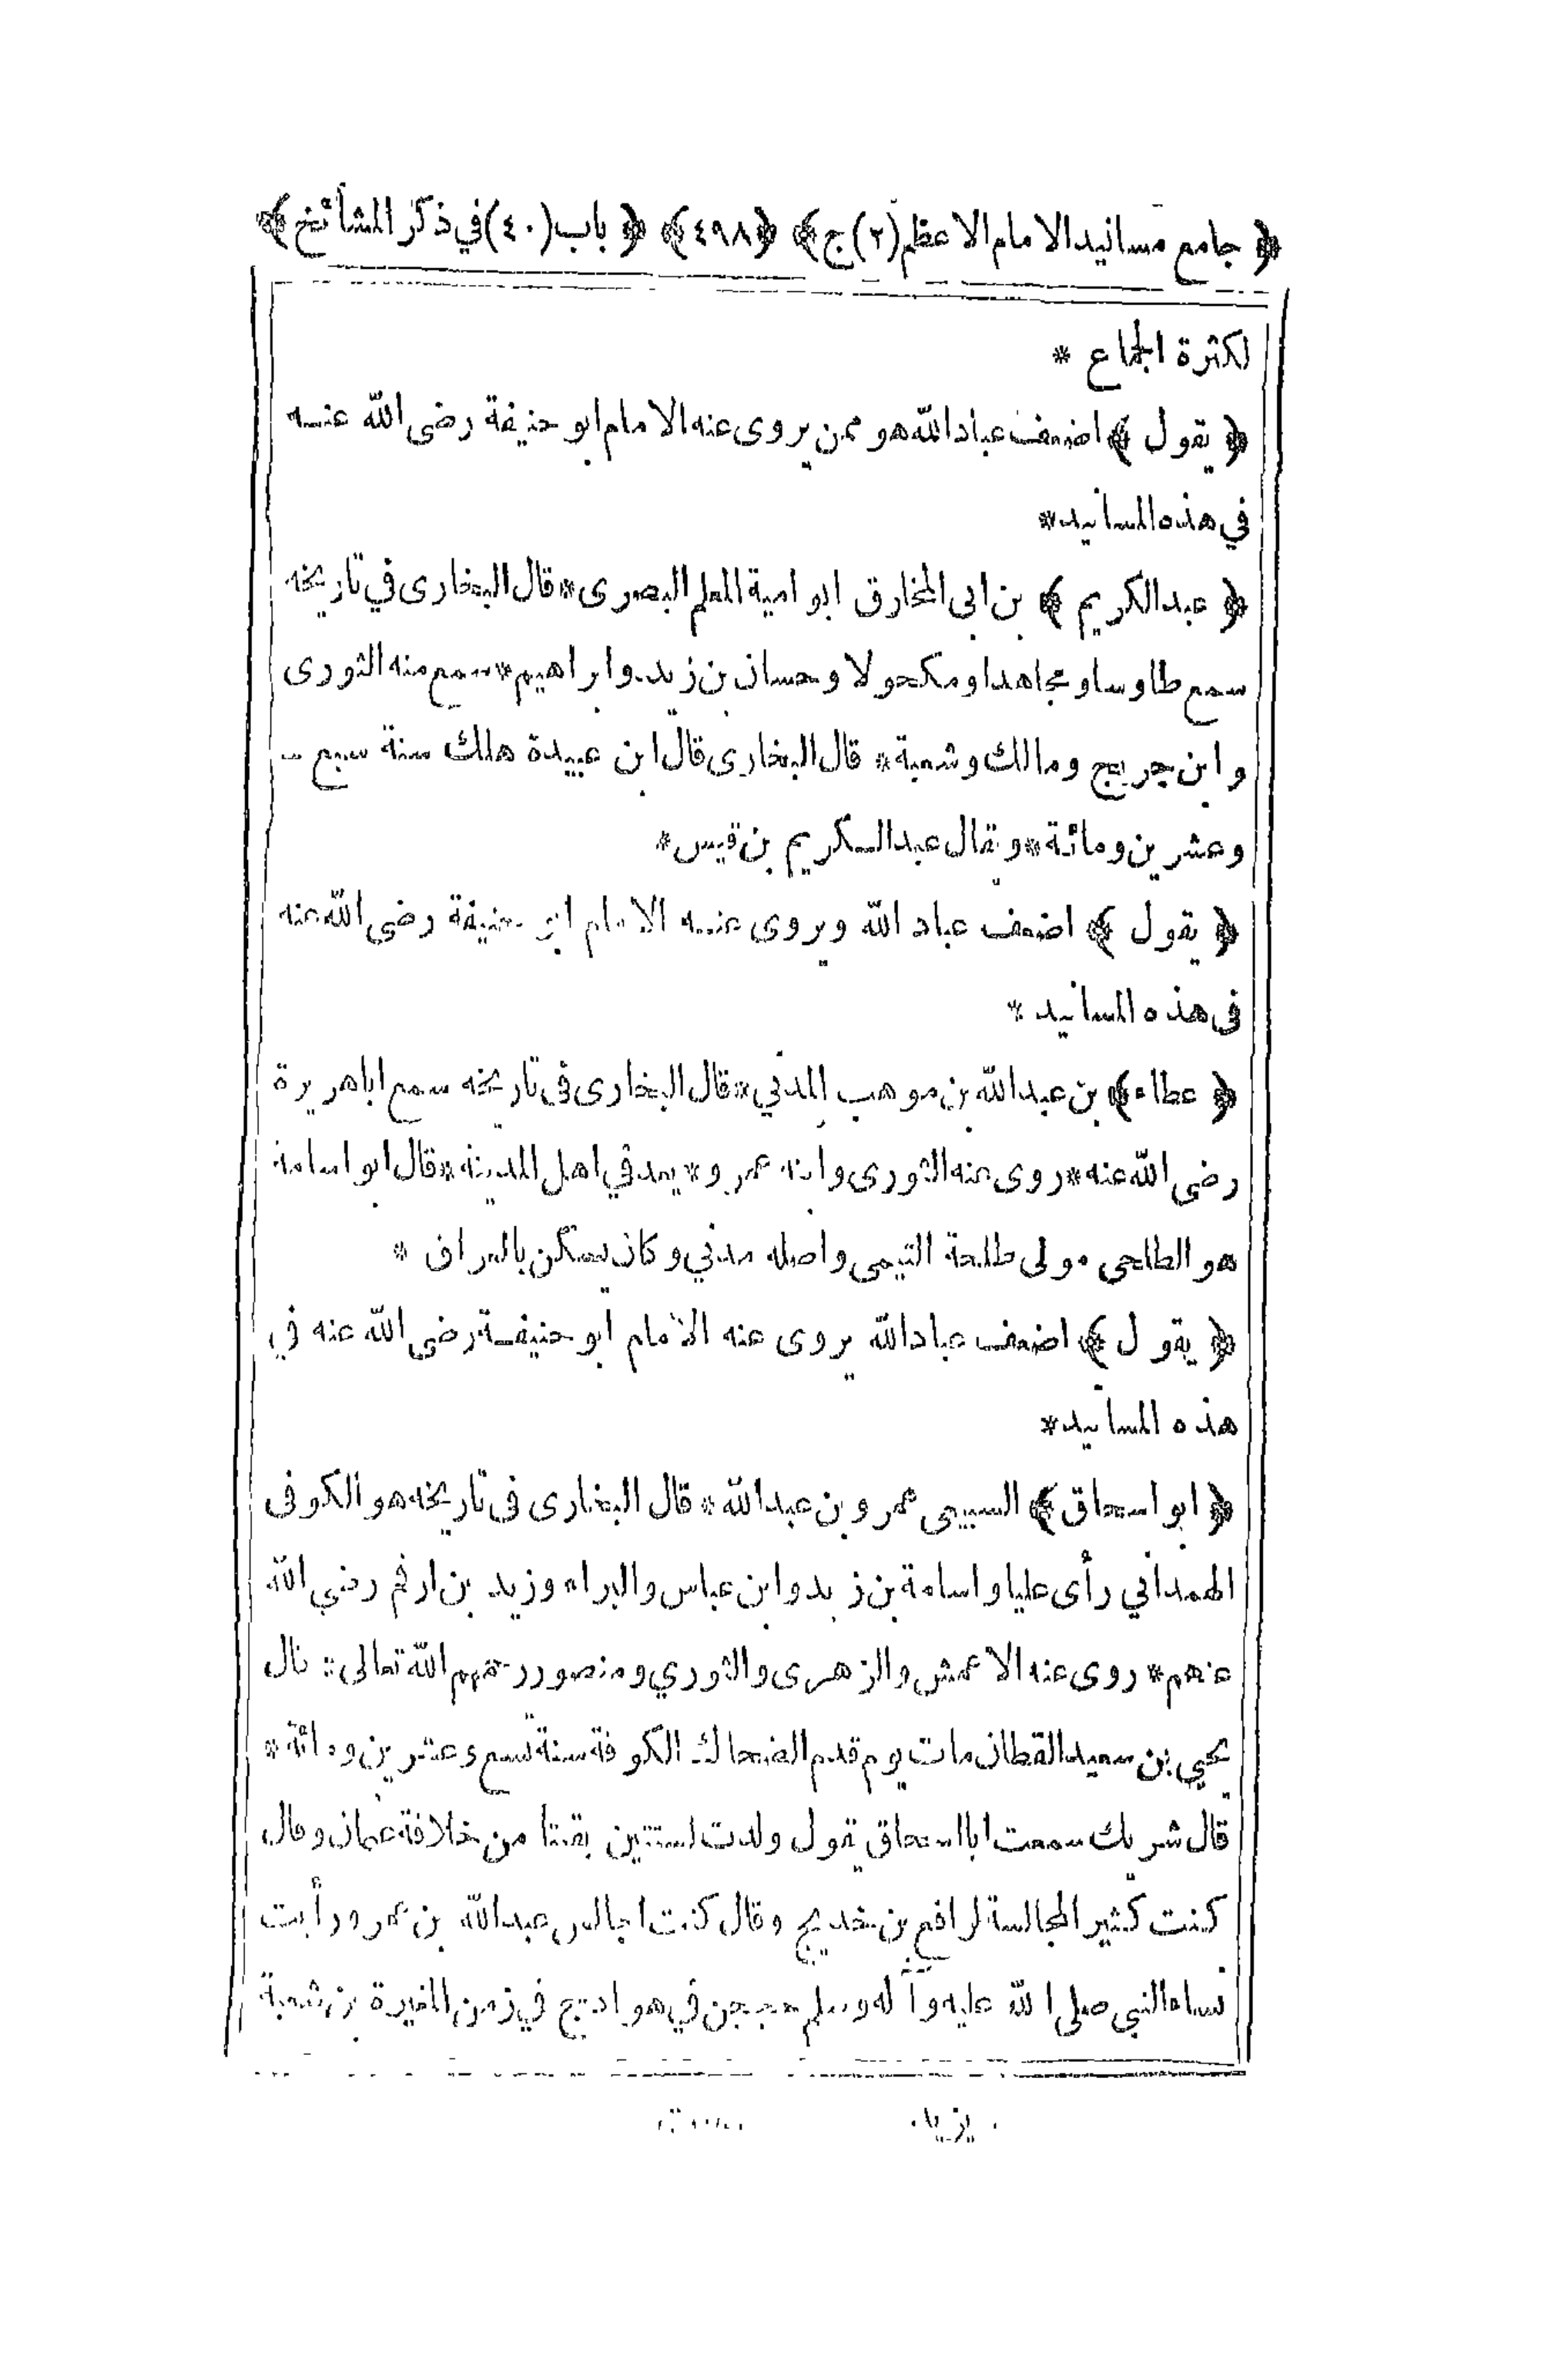 ﴿ جامع مسانيد الامام الاعظم (٢) ج ﴾ ﴿ ٤٩٨ ﴾ ﴿ باب (٤٠) في ذكر المشائخ ﴾
لكثرة الجماع *
﴿ يقول ﴾ اضعف عباد الله هو ممن يروى عنه الامام ابو حنيفة رضى الله عنه
في هذه المسانيد *
﴿ عبد الكريم ﴾ بن ابى المخارق ابو امية المعلم البصرى * قال البخارى في تاريخه
سمع طاوسا ومجاهدا ومكحولا وحسان بن زيد وابراهيم * سمع منه الثورى
وابن جريج ومالك وشعبة * قال البخارى قال ابن عيينة هلك سنة سبع
وعشرين ومائة * ويقال عبد الكريم بن قيس *
﴿ يقول ﴾ اضعف عباد الله ويروى عنه الامام ابو حنيفة رضى الله عنه
فى هذه المسانيد *
﴿ عطاء ﴾ بن عبد الله بن موهب المدني * قال البخارى فى تاريخه سمع اباهريرة
رضى الله عنه * روى عنه الثورى وابنه عمرو * يعد في اهل المدينة * قال ابو اسامة
هو الطلحى مولى طلحة التيمى واصله مدني وكان يسكن بالعراق *
﴿ يقول ﴾ اضعف عباد الله يروى عنه الامام ابو حنيفة رضى الله عنه في
هذه المسانيد *
﴿ ابو اسحاق ﴾ السبيعى عمرو بن عبد الله * قال البخارى فى تاريخه هو الكوفى
الهمداني رأى عليا واسامة بن زيد وابن عباس والبراء وزيد بن ارقم رضي الله
عنهم * روى عنه الاعمش والزهرى والثوري ومنصور رحمهم الله تعالى * قال
يحيي بن سعيد القطان مات يوم قدم الضحاك الكوفة سنة تسع وعشرين ومائة *
قال شريك سمعت ابا اسحاق يقول ولدت لسنتين بقيتا من خلافة عثمان وقال
كنت كثير المجالسة لرافع بن خديج وقال كنت اجالس عبد الله بن عمر ورأيت
نساء النبى صلى الله عليه وآله وسلم حججن في هواديج في زمن المغيرة بن شعبة